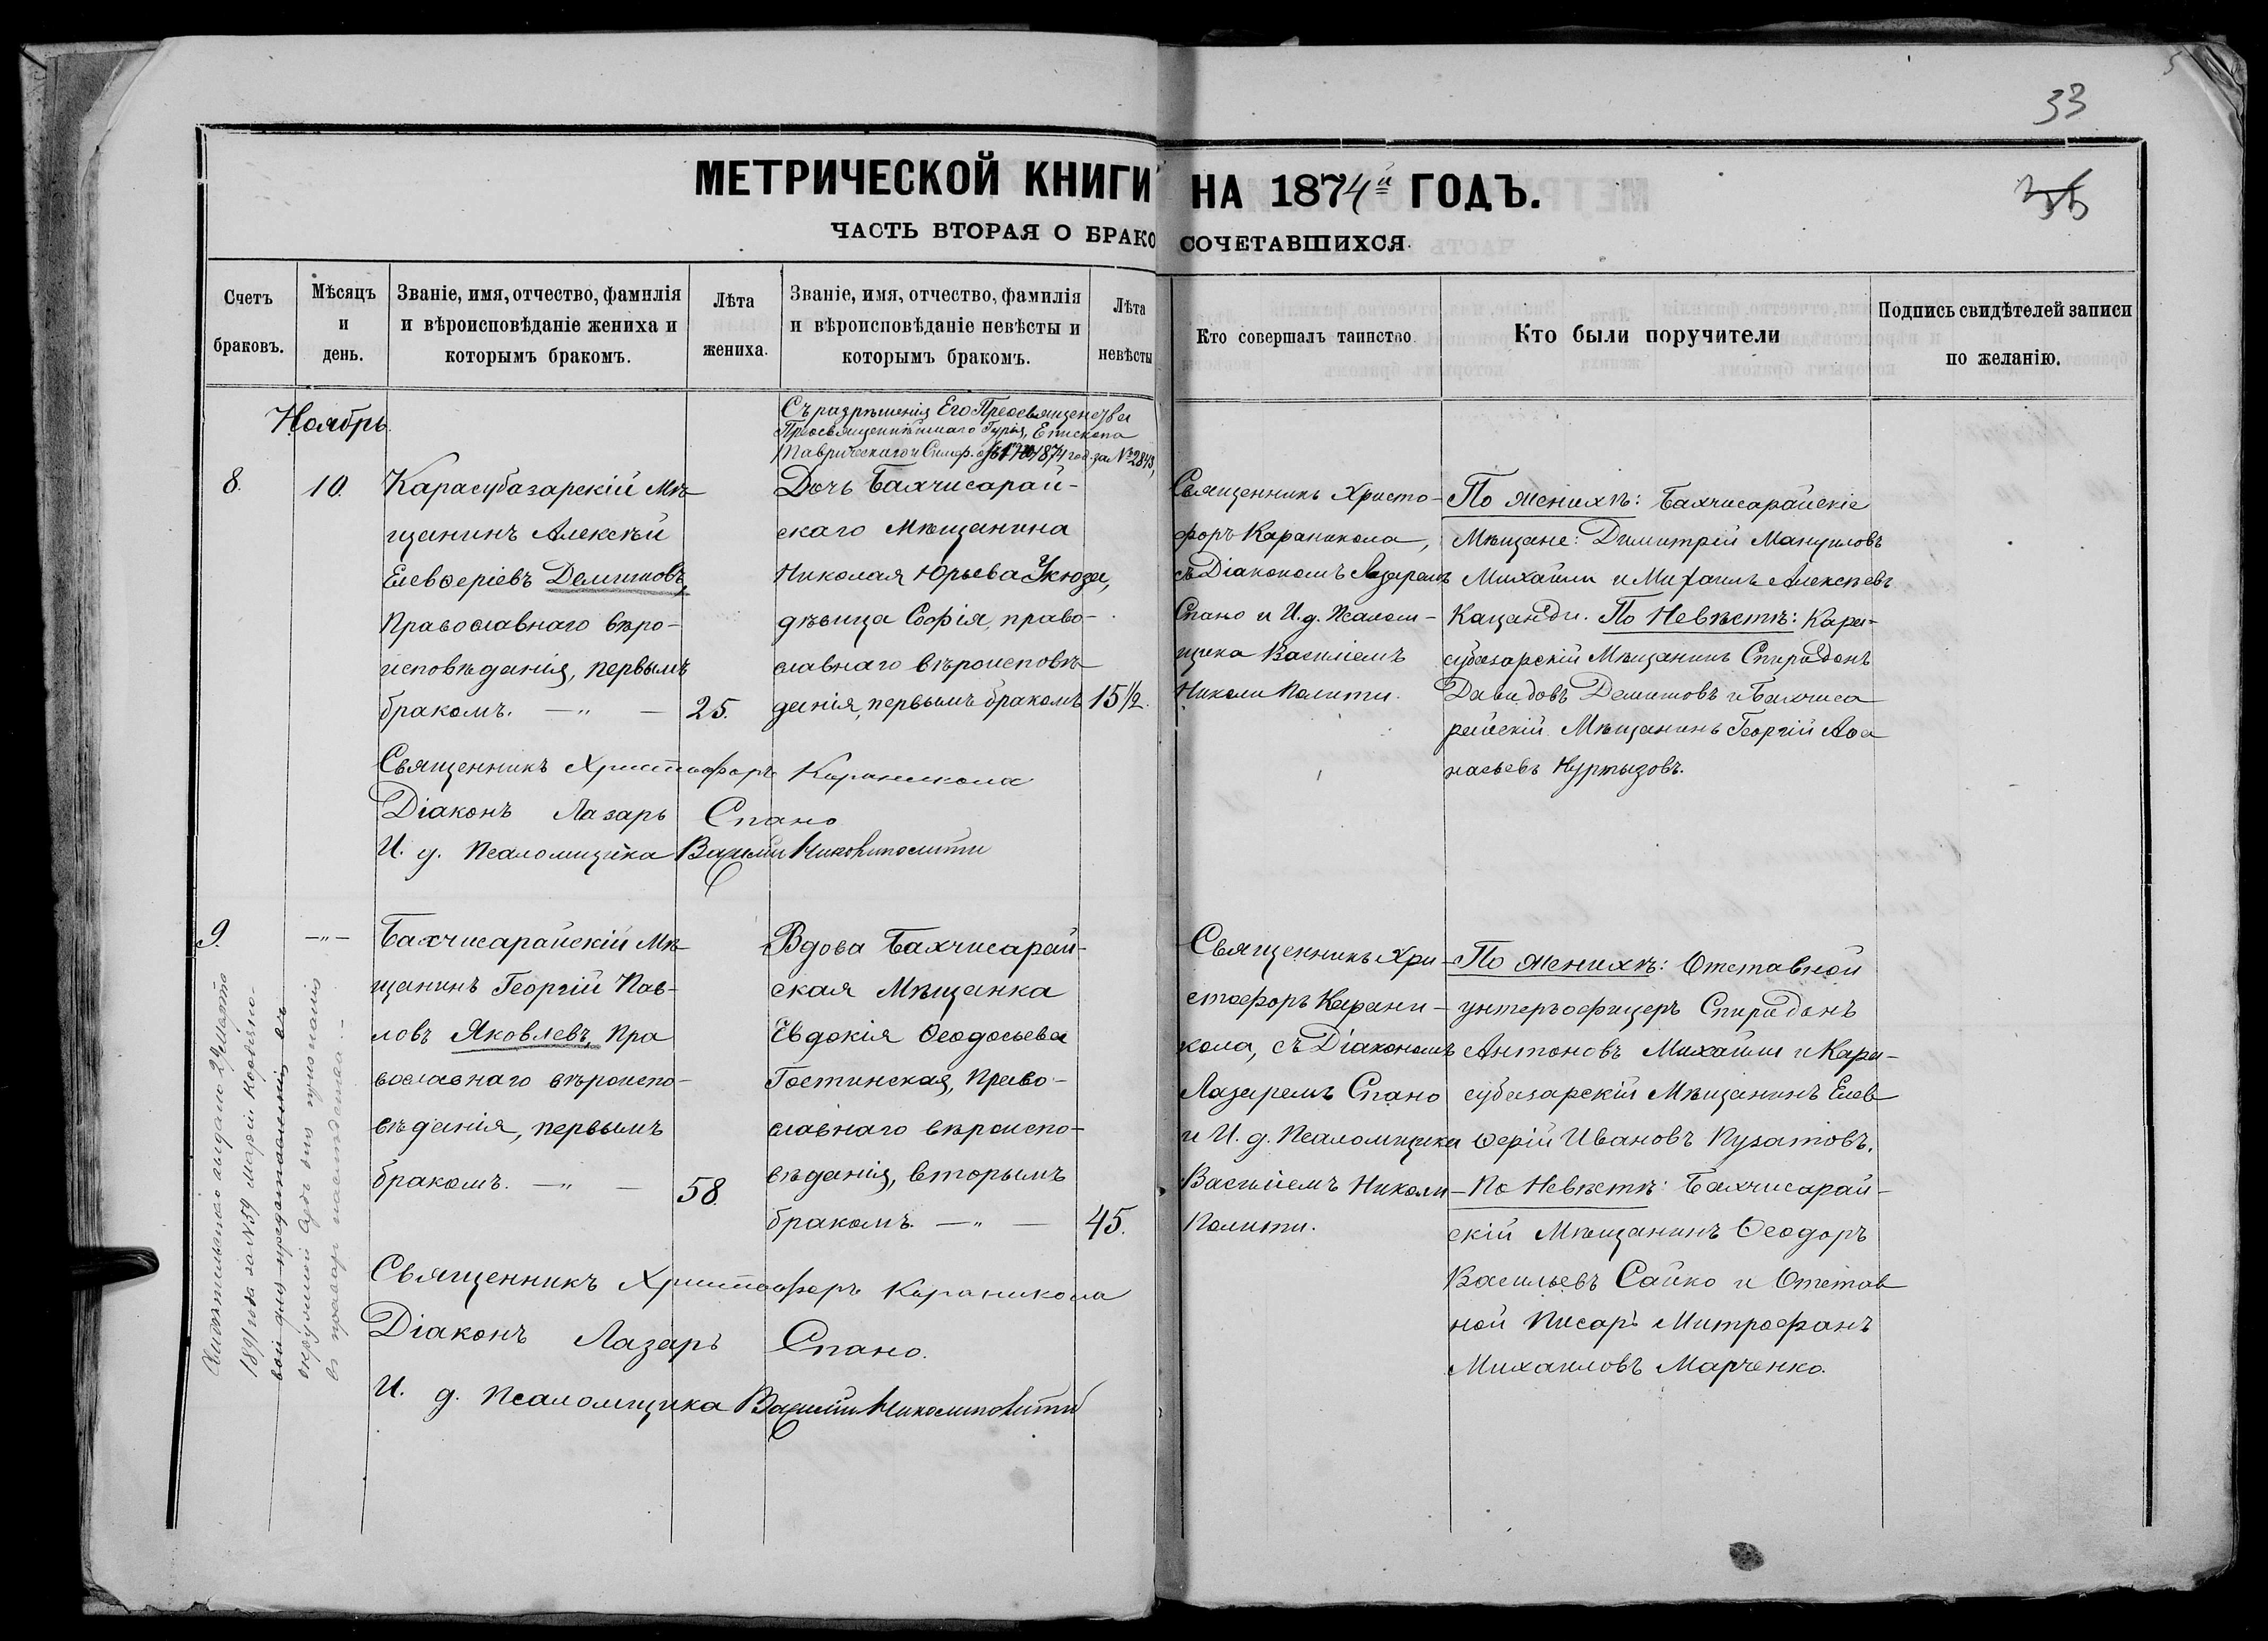 33
МЕТРИЧЕСКОЙ КНИГИ НА 1874й ГОДЪ.
ЧАСТЬ ВТОРАЯ О БРАКОСОЧЕТАВШИХСЯ.
Счетъ браковъ.
Мѣсяцъ и день.
Званіе, имя, отчество, фамилія
и вѣроисповѣданіе жениха и
которымъ бракомъ.
Лѣта жениха.
Званіе, имя, отчество, фамилія
и вѣроисповѣданіе невѣсты и
которымъ бракомъ.
Лѣта невѣсты
Кто совершалъ таинство.
Кто были поручители
Подпись свидѣтелей записи
по желанію.
Ноябрь.
8.
10.
Карасубазарскій Мѣ-
щанинъ Алексѣй
Елевѳеріевъ Делишовъ,
Православнаго вѣро-
исповѣданія, первымъ
бракомъ. — „ —
25.
Съ разрѣшенія Его Преосвященства
Преосвященнѣйшаго Гурія, Епископа
Таврическаго и Симф. 1874 год. за № 2843,
Дочь Бахчисарай-
скаго Мѣщанина
Николая Юрьева Укюзи,
дѣвица Софія, право-
славнаго вѣроисповѣ-
данія, первымъ бракомъ
15 1/2.
Священникъ Христо-
форъ Караникола,
съ Діакономъ Лазаремъ
Спано и И. д. Псалом-
щика Василіемъ
Николи Полити.
По женихѣ: Бахчисарайскіе
Мѣщане: Димитрій Мануиловъ
Михайли и Михаилъ Алексѣевъ
Кацанди. По Невѣстѣ: Кара-
субазарскій Мѣщанинъ Спиридонъ
Давидовъ Делишовъ и Бахчиса
райскій Мѣщанинъ Георгій Аѳа
насьевъ Нуртызовъ.
Священникъ Христофоръ Караникола
Діаконъ Лазарь Спано
И. д. Псаломщика Василій Николиполити
9.
— „ —
Бахчисарайскій Мѣ-
щанинъ Георгій Пав-
ловъ Яковлевъ, Пра
вославнаго вѣроиспо-
вѣданія, первымъ
бракомъ. — „ —
58.
Вдова Бахчисарай-
ская Мѣщанка
Евдокія Ѳеодосьева
Гостинская, Право-
славнаго вѣроиспо-
вѣданія, вторымъ
бракомъ. — „ —
45.
Священникъ Хри-
стофоръ Карани-
кола, съ Діакономъ
Лазаремъ Спано
и И. д. Псаломщика
Василіемъ Николи-
Полити.
По женихѣ: Отставной
унтеръофицеръ Спиридонъ
Антоновъ Михайли и Кара-
субазарскій Мѣщанинъ Елев
ѳерій Ивановъ Пузатовъ.
По Невѣстѣ: Бахчисарай-
скій Мѣщанинъ Ѳеодоръ
Васильевъ Сайко и Отстав
ной Писарь Митрофанъ
Михаиловъ Марченко.
Священникъ Христофоръ Караникола
Діаконъ Лазарь Спано.
И. д. Псаломщика Василій Николиполити
выдано 2 Марта
1891 года за № 59 Маріи